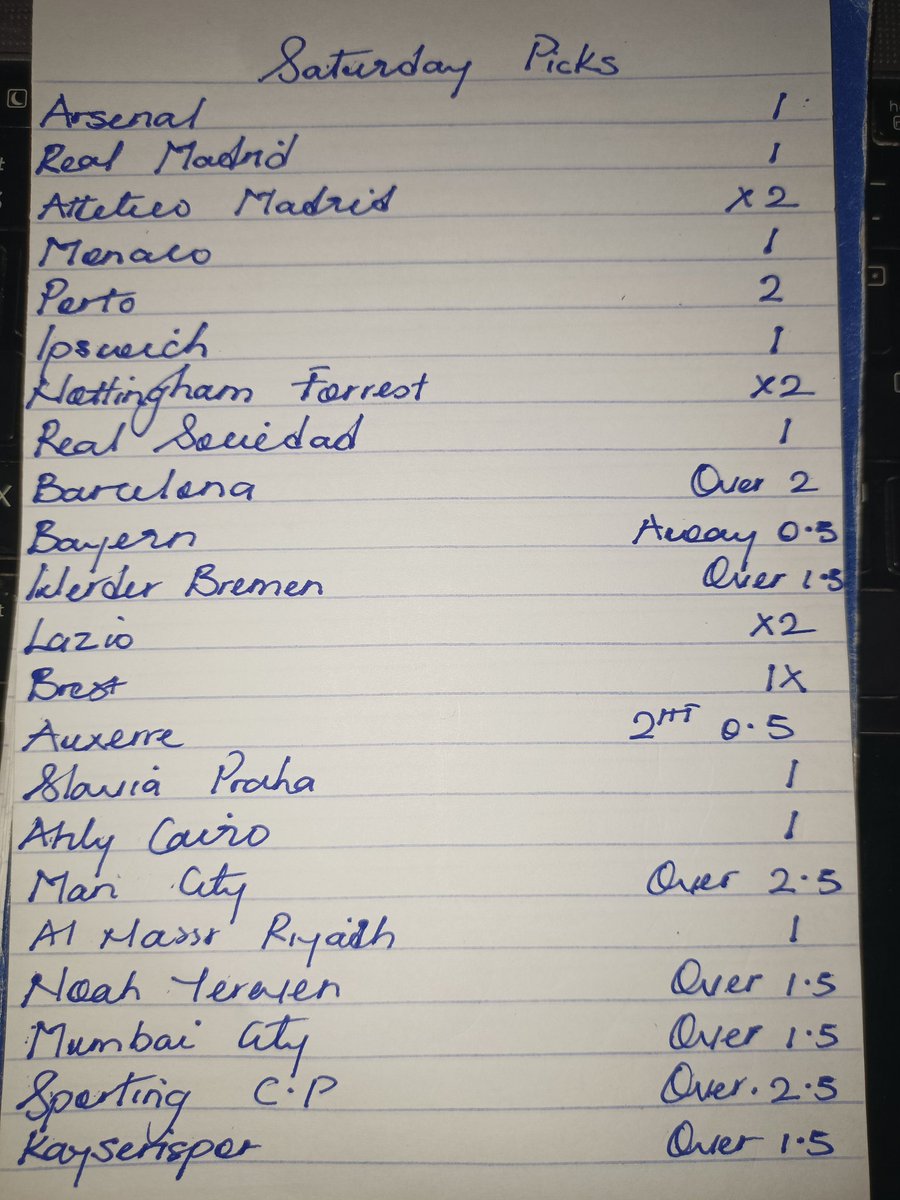 Saturday Picks
Arsenal 1
Real Madrid 1
Attetico Madrid X2
Monaco 1
Porto 2
Ipswich 1
Nottingham Forrest X2
Real Sociedad 1
Barcelona Over 2
Bayern Away 0.5
Werder Bremen Over 1.5
Lazio X2
Brest 1X
Auxerre 2HT 0.5
Slavia Praha 1
Ahly Cairo 1
Man City Over 2.5
Al Nassr Riyadh 1
Noah Yereven Over 1.5
Mumbai City Over 1.5
Sporting C.P Over. 2.5
Kayserispor Over 1.5